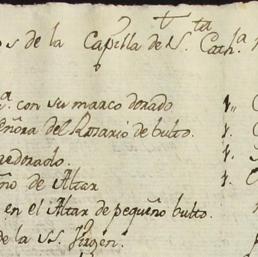 os de la Capilla de S.ta Cath.a
a. con su marco dorado 1,,
eñora del Rosario de bulto. 1.
redorado. 1.
ño de Altar 1.
en el Altar de pequeño bulto.
de la SS. Virgen.